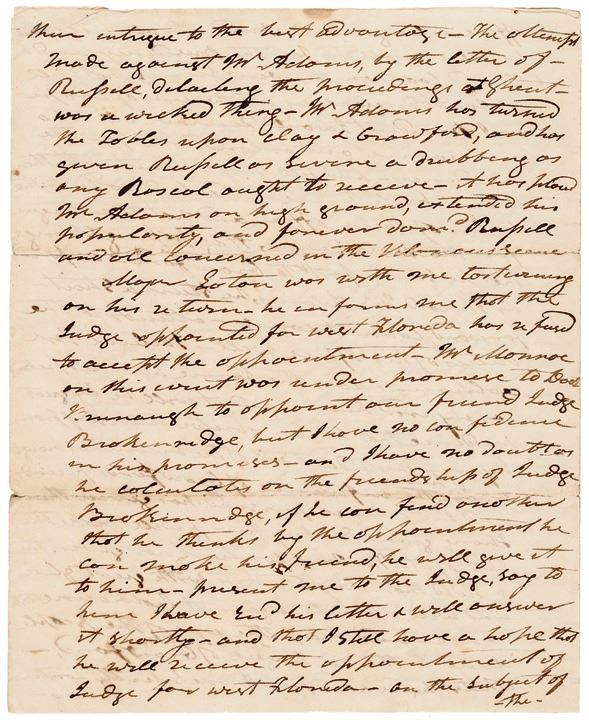 their intrigue to the best advantage - The attempt
made against Mr Adams, by the letter of -
Russell, detailing the proceedings at Ghent -
was a wicked thing - Mr Adams has turned
the Tables upon Clay & Crawford, and has
given Russell as severe a drubbing as
any Rascal ought to receive - it has placed
Mr Adams on high ground, extended his
popularity, and forever damd. Russell
and all concerned in the
Major Eaton was with me yesterday
on his return - he informs me that the
Judge appointed for west Florida has refused
to accept the appointment - Mr Monroe
on this event was under promise to Doct
to appoint our friend Judge
Brokenridge, but I have no confidence
in his promises - and I have no doubt as
he calculates on the friendship of Judge
Brokenridge, if he can find another
that he thinks by the appointment he
can make his friend, he will give it
to him - present me to the Judge, say to
him I have recd his letter & will answer
it shortly - and that I still have a hope that
he will receive the appointment of
Judge for west Florida - on the subject of
- the -